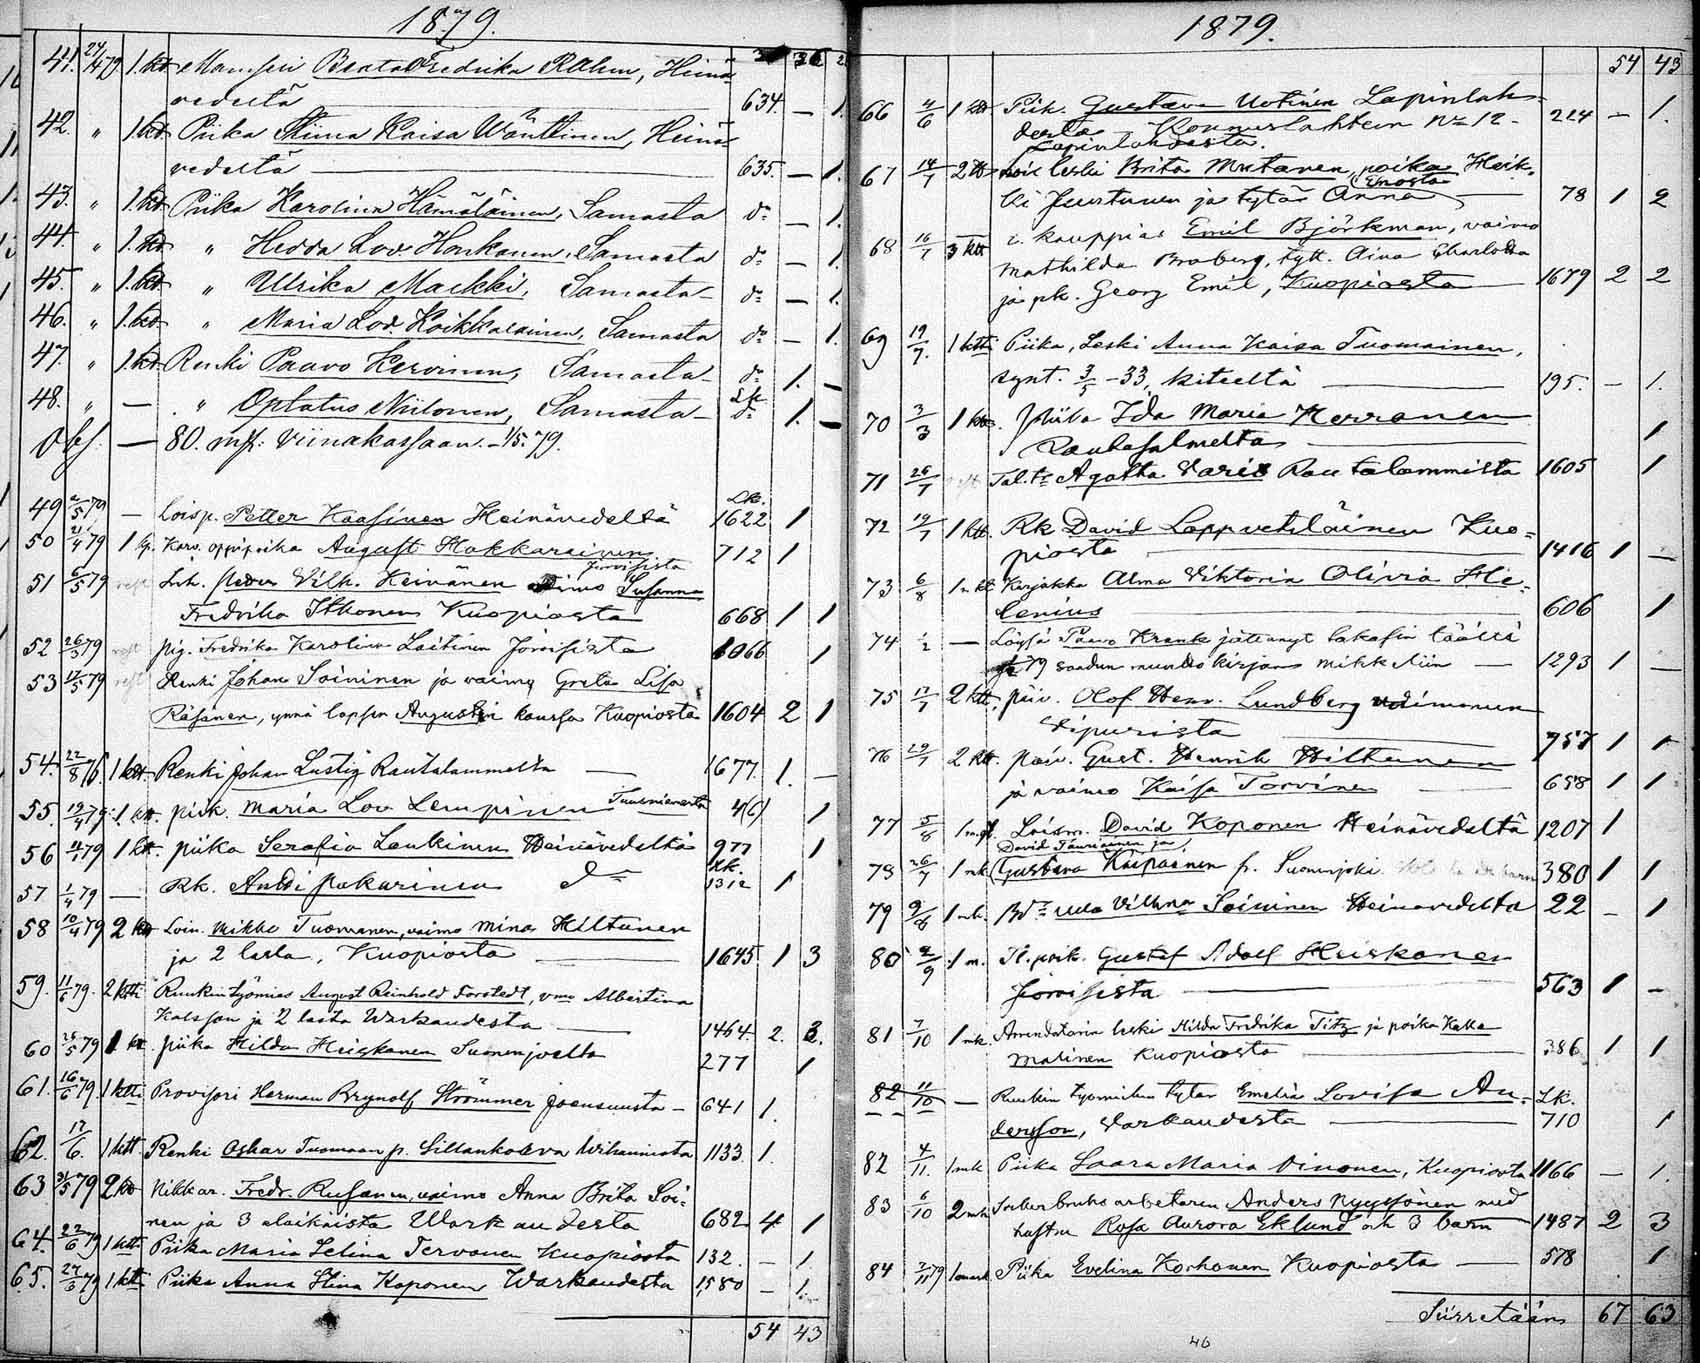 1879.
41. 27/4 79 1.kt. Mamseli Beata Fredrika Rahm, Heinä-
vedeltä 634. — 1.
42. " 1.kt. Piika Stiina Kaisa Wänttinen, Heinä-
vedeltä 635. — 1.
43. " 1.kt. Piika Karolina Hämäläinen, Samasta do — 1.
44. " 1.kt. " Hedda Lov. Honkanen, Samasta do — 1.
45. " 1.kt. " Ulrika Markki, Samasta do — 1.
46. " 1.kt. " Maria Lov. Koikkalainen, Samasta do — 1.
47. " 1.kt. Renki Paavo Kervinen, Samasta do 1. —
48. " — " Optatus Niilonen, Samasta Lk. do 1. —
— 80. mk: Viinakassaan. – 1/5. 79.
49 2/5 79 — Loisp. Petter Kaasinen Heinävedeltä Lk. 1622 1
50 21/4 79 1 Karv. oppipoika August Hakkarainen Joroisista 712 1
51 6/5 79 Vilh. Keinänen vaimo Susanna
Fredrika Itkonen Kuopiosta 668 1 1
52 26/3 79 pig. Fredrika Karolina Laitinen Joroisista 1066 1
53 17/5 79 Renki Johan Soininen ja vaimo Greta Lisa
Räsänen, ynnä lapsen Augustin kanssa Kuopiosta 1604 2 1
54. 22/8 78. 1 ktt. Renki Johan Lustig Rautalammelta — 1677. 1. —
55. 19/4 79. 1. ktt. piik. Maria Lov Lempinen Tuusniemestä 461 1
56 79 1 ktt. piika Serafia Laukinen Heinävedeltä 977 1
57 1/4 79 — Rk. Antti Pakarinen do Lk. 1312 1
58 10/4 79 2 ktt Lois. Mikko Tuomanen, vaimo Mina Hiltunen
ja 2 lasta, Kuopiosta — 1645 1 3
59. 11/6 79. 2 ktti Ruukintyömies August Reinhold Forstedt, vmo Albertina
Kalsson ja 2 lasta Warkaudesta — 1464. 2. 3.
60 25/5 79 1 kt. piika Hilda Heiskanen Suonenjoelta 277 1
61. 16/6 79. 1 ktti Provisori Herman Brynolf Strömmer Joensuusta – 641 1.
62. 17/6. 1 ktt. Renki Oskar Tuomaan p. Sillankorva Wihannista 1133 1.
63 31/5 79 2 kt Nikkar. Fredr. Rusanen, vaimo Anna Brita Soi-
nen ja 3 alaikäistä Warkaudesta 682 4 1
64. 22/6 79 1 ktt. Piika Maria Selina Tervonen Kuopiosta 132. — 1
65. 27/6 79 1 ktt. Piika Anna Stina Koponen Warkaudesta 1580 — 1.
54 43
1879.
54 43
66 4/6 1 kt Piik. Gustava Uotinen Lapinlah-
desta Lapinlahdesta. No 12 – 224 — 1.
67 14/7 2 kt lois leski Brita Mutanen, poika Heik-
ki Juutunen ja tytär Anna Enosta 78 1 2
68 16/7 3 ktt e. kauppias Emil Björkman, vaimo
Mathilda Broberg, tytt. Aina Charlotta
ja pk. Georg Emil, Kuopiosta — 1679 2 2
69 19/7. 1 ktti Piika, Leski Anna Kaisa Tuomainen,
synt. 3/5 –33, Kiteeltä — 195. — 1.
70 3/3 1 kt. piika Ida Maria Kerranen
Rautasalmelta — 1
71 26/7 Tal.tr Agatha Varis Rautalammista 1605 1
72 19/7 1 ktt. Rk David Lappveteläinen Kuo-
piosta — 1416 1 —
73 6/8 1 Alma Viktoria Olivia He-
lenius — 606 1
74 1/2 — Löysä Paavo Krank jättänyt täältä
79 saadun muuttokirjan Mikkeliin — 1293 1 —
75 17/7 2 ktt. päiv. Olof Henr. Lundberg vaimonen
Vipurista — 757 1 1
76 29/7 2 ktt. päiv. Gust. Henrik Hiltunen
ja vaimo Kaisa Torvinen — 658 1 1
77 5/8 1 Loism. David Koponen Heinävedeltä 1207 1
David Tauriainen ja
78 26/7 1 mk Gustava Kaipainen fr. Suonenjoki 380 1 1
79 9/8 1 mk. Ulla Vilhna Soininen Heinävedeltä 22 — 1
80 4/9 1 m. Tl. poik. Gustaf Adolf Heiskanen
Joroisista — 563 1 —
81 7/10 1 mk. Arendatorin leski Hilda Fredrika Titz ja poika Kalle
Malinen Kuopiosta — 386 1 1
82 11/10 — Ruukin työmiehen tytär Emelia Lovisa An-
dersson, Warkaudesta — Lk. 710 1
82 4/11. 1 mk Piika Saara Maria Vinonen, Kuopiosta 1166 — 1.
83 6/10 2 mk arbetaren Anders Nyyssönen med
hustru Rosa Aurora Eklund och 3 barn 1487 2 3
84 2/11 79 1 mark Piika Evelina Korhonen Kuopiosta — 578 1
Siirretään 67 63
46